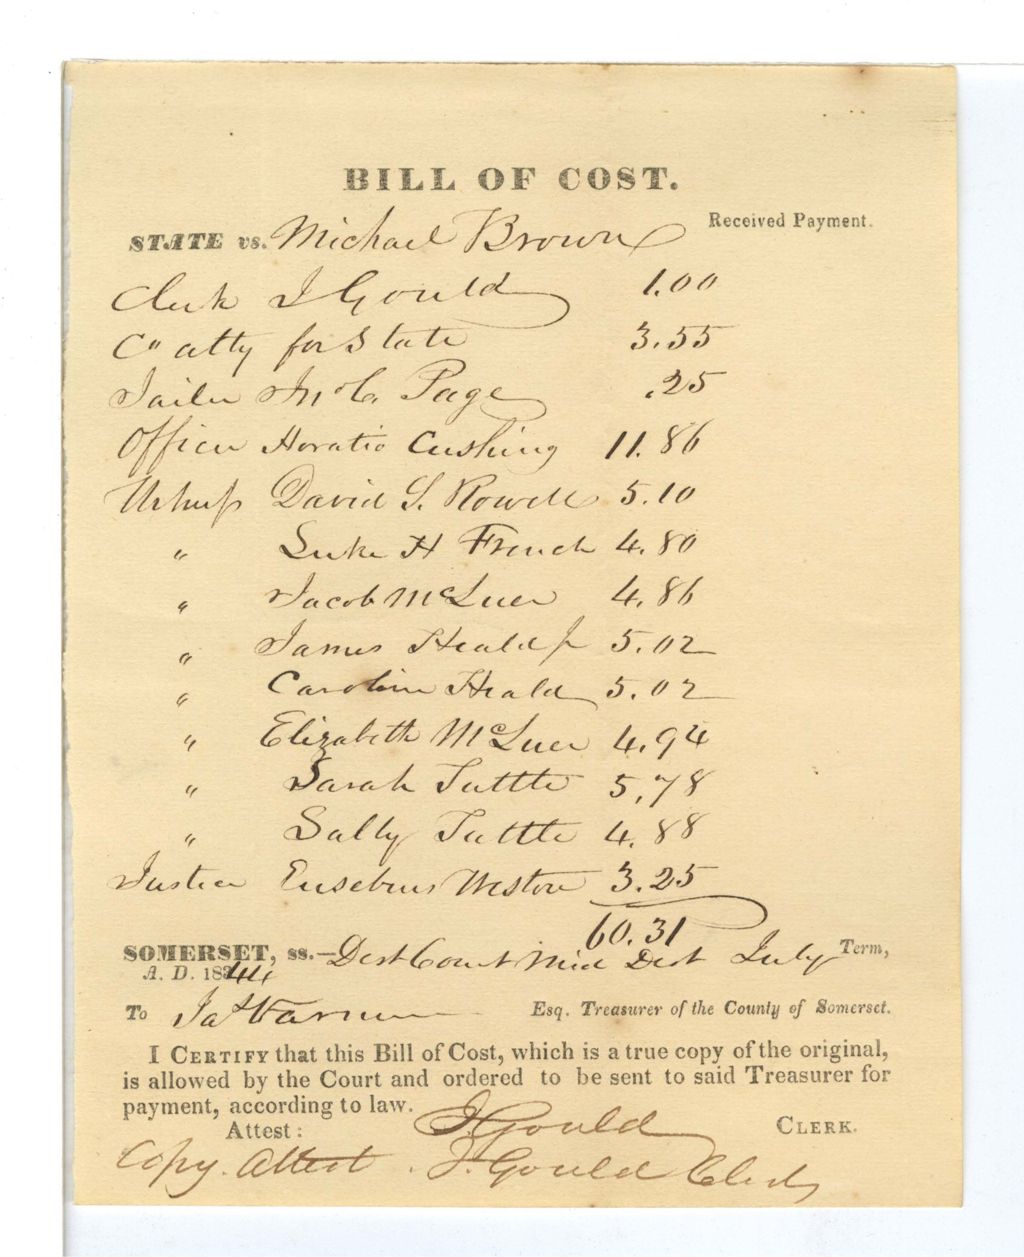 BILL OF COST.
Received Payment.
STATE vs. Michael Brown
Clerk I Gould 1.00
Co atty for State 3.55
Jailer Jno C. Page .25
Officer Horatio Cushing 11.86
Witness David S. Rowell 5.10
" Luke H French 4.80
" Jacob McLuer 4.86
" James Heald Jr 5.02
" Caroline Heald 5.02
" Elizabeth McLuer 4.94
" Sarah Tuttle 5,78
" Sally Tuttle 4.88
Justice Eusebius Weston 3.25
60.31
SOMERSET, ss.— Dist Court Mid Dist July Term,
A. D. 1844
To Esq. Treasurer of the County of Somerset.
I CERTIFY that this Bill of Cost, which is a true copy of the original,
is allowed by the Court and ordered to be sent to said Treasurer for
payment, according to law.
Attest: I. Gould CLERK.
Copy. Attest. I. Gould Clerk